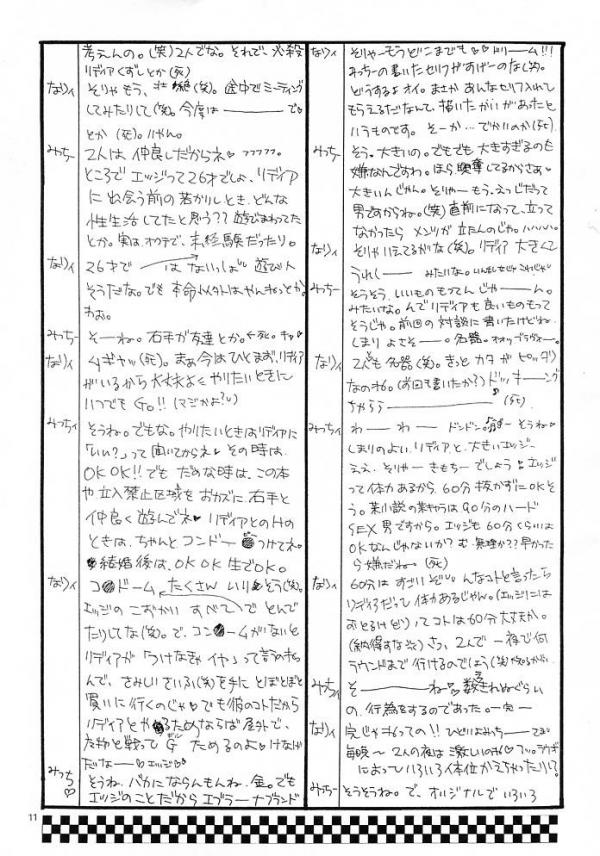 考えんの。(笑)2人でな。それで、必殺
リディアくずしとか(死)
なりィ そりゃもう、壮絶(笑)。途中でミーティング
してみたりして(笑)。今度は――――でっ
とか(死)。いやん。
みっちー 2人は仲良しだからネ♡ フフフフフ。
ところでエッジって26才でしょ、リディア
に出会う前の若かりしとき、どんな
性生活してたと思う??遊びまわってた
とか。実は、オクテで、未経験だったり。
なりィ 26才で――はないっしょ 遊び人
そうだな。でも本命以外はやんねっとか。
わお。
みっちー そーね。右手が友達とか。
なりィ ムギャッ(死)。まぁ今はひとまず、リディア
がいるから大丈夫よく やりたいときに
いつでもGo!!(マジかよ?)
みっちィ そうね。でもな。やりたいときはリディアに
「いい?」って聞いてからネ♡ その時は
OK OK!! でも だめな時は、この本
や立入禁止区域をオカズに、右手と
仲良く遊んでネ♡ リディアとのHの
ときは、ちゃんとコンドー●つけてネ。
結婚後は、OK OK 生でOK。
なりィ コ●ドーム たくさん いりそう(笑)。
エッジのこづかい すべて でとんで
たりしてな(笑)。で、コン●ームがないと
リディアが「つけなきゃイヤ」って言うもん
んで、さみしいさいふ(笑)を手に とぼとぼと
買いに行くのじゃ♡でも彼のコトだから
リディアとや●るためならば屋外で、
怪物と戦ってGギルためるのよ♡けなげ
だな―♡エッジ♡
みっち♡ そうね、バカにならんもんね、金。でも
エッジのことだからエブラーナブランド
なりィ そりゃーもうどこまでも♡ドリーム!!!
みっちーの書いたセリフがすげーのなし(笑)。
どうするよ オイ。まさか あんなセリフ入れて
もらえるだなんて、描いたかいがあったと
いうものです。 そーか…でかいのか(死)
みっちー そう。大きいの。でもでも 大きすぎるのも
嫌なんですわ。ほら興奮してるからさぁ
大きいんじゃん。そりゃーもう、えっじだって
男ですからね。(笑)直前になって、立って
なかったら メンツが立たんのじゃ。ハハハい。
なりィ そりゃいえてるがな(笑)。リディア 大きくて
うれし―― みたいな。
みっちー そうそう、いいものもってんじゃ――ん。
みたいなね。んでリディアも良いものもって
そうじゃ。前回の対談に書いたけどね
しまり よさそー。名器。
なりィ 2人とも名器(笑)。きっと カタがピッタリ
なのね。(お前も書いたか?)ドッキーング
ちゃらら―――― (死)
みっちィ わ― わ― ドンドン。 そうね
しまりのよい、リディアと、大きいエッジー
ええ、そりゃー きもちーでしょう♪エッジ
って体力あるから、60分抜かずにOKそ
う。某小説の某キャラは90分のハード
SEX男ですから。エッジも60分くらいは
OKなんじゃないか? む、無理か?? 早かった
ら嫌だね―。(死)
なりィ 60分は すごいぞい。んなコトと言ったら
リディアだって 体力あるじゃん。(エッジには
おとるけど)ってコトは60分大丈夫か。
(納得すな) さっ、2人で 一夜で何
ラウンドまで行けるのでしょう
みちィ そ――――ね♡ 殺されぬぐらい
の、行為をするのであった。
なりィ 完じゃねっての!! ひどいよみち―てめ
毎晩〜2人の夜は激しいのね♡
によっていろいろ体位がえちゃったり!?
みっちー そうそうね。で、オリジナルでいろいろ
11